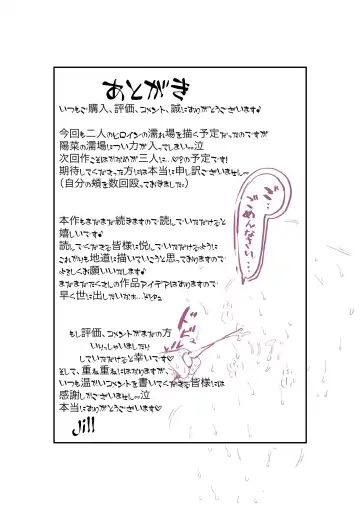 あとがき
いつもご購入、評価、コメント、誠にありがとうございます♪
今回も二人のヒロインの濡れ場を描く予定だったのですが
陽菜の濡場につい力が入ってしまい…泣
次回作こそはかためが三人に…♡?の予定です!
期待してくださった方には本当に申し訳ございません…
(自分の頬を数回殴っておきました。)
本作もまだまだ続きますので読んでいただけると
嬉しいです♪
読んでくださる皆様に悦んでいただけるように
これからも地道に描いていこうと思っておりますので
よろしくお願いいたします♪
まだまだたくさんの作品アイデアはありますので
早く世に出したいなあ…
もし評価、コメントがまだの方
いらっしゃいましたら
していただけると幸いです♡
そして、重ね重ねにはなりますが、
いつも温かいコメントを書いてくださる皆様には
感謝しかございません…泣
本当にありがとうございます♡
Jill
ご…
ごめんなさい…
ドドド